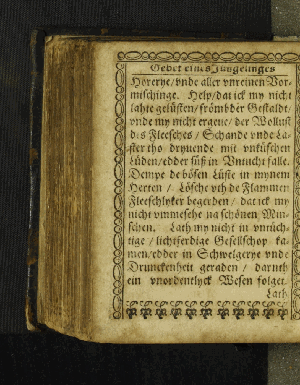 Gebet eines Jungelinges
Hörerye/ vnde aller vnreinen Vor-
mischinge. Help/ dat ick my nicht
lathe gelüsten/ frömbder Gestaldt/
vnde my nicht ergeue/ der Wollust
des Fleesches/ Schande vnde La-
ster tho dryuende mit vnküschen
Lüden/ edder süß in Vnnucht falle.
Dempe de bösen Lüste in mynem
Herten/ Lösche vth de Flammen
Fleeschlyker begerden/ dat ick my
nicht vmmesehe na schönen Min-
schen. Lath my nicht in vntüch-
tige/ lichtferdige Gesellschop ka-
men/ edder in Schwelgerye vnde
Drunckenheit geraden/ daruth
ein vnordentlyck Wesen folget.
Lath